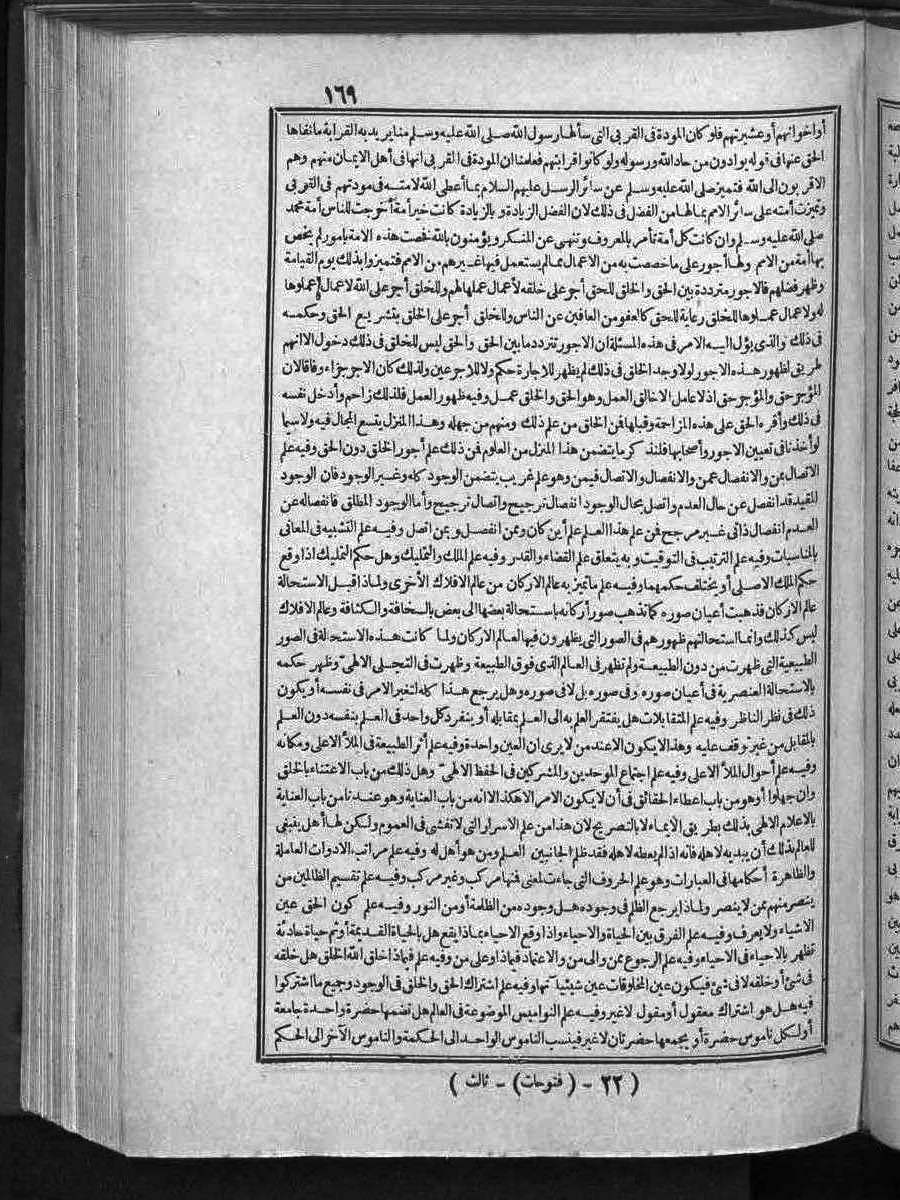 ١٦٩
أو اخوانهم أو عشيرتهم فلو كان المودة فى القربى التى سألها رسول الله صلى الله عليه وسلم منا يريد به القرابة ما نفاها
الحق عنها فى قوله يوادون من حاد الله ورسوله ولو كانوا قرابتهم فعلمنا ان المودة فى القربى انها فى أهل الايمان منهم وهم
الاقربون الى الله فتميز صلى الله عليه وسلم عن سائر الرسل عليهم السلام بما أعطى الله لامته فى مودتهم فى القربى
وتميزت أمته على سائر الامم بمالها من الفضل فى ذلك لان الفضل الزيادة و بالزيادة كانت خير أمة أخرجت للناس أمة محمد
صلى الله عليه وسلم وان كانت كل أمة تأمر بالمعروف وتنهى عن المنكر ويؤمنون بالله فخصت هذه الامة بامور لم يخص
بها أمة من الامم ولها أجور على ما خصصت به من الاعمال مما لم يستعمل فيها غيرهم من الامم فتميزوا بذلك يوم القيامة
وظهر فضلهم فالاجور مترددة بين الحق والخلق للحق أجر على خلقه لأعمال عملها لهم وللخلق أجر على الله لاعمال عملوها
له ولاعمال عملوها للخلق رعاية للحق كالعفو من العافين عن الناس وللخلق أجر على الخلق بتشريع الحق وحكمه
فى ذلك والذى يؤل اليه الامر فى هذه المسئلة ان الاجور تتردد ما بين الحق والحق ليس للخلق فى ذلك دخول الا انهم
طريق لظهور هذه الاجور لولا وجد الخلق فى ذلك لم يظهر للاجارة حكم ولا للاجر عين ولذلك كان الاجر جزاء وفاقا لان
المؤجر حق والمؤجر حق اذ لا عامل الا خالق العمل وهو الحق والخلق عمل وفيه ظهور العمل فلذلك زاحم وأدخل نفسه
فى ذلك وأقره الحق على هذه المزاحمة وقبلها فمن الخلق من علم ذلك ومنهم من جهله وهذا المنزل يتسع المجال فيه ولا سيما
لو أخذنا فى تعيين الاجور وأصحابها فلنذكر ما يتضمن هذا المنزل من العلوم فمن ذلك علم أجور الخلق دون الحق وفيه علم
الاتصال بمن والانفصال عمن والانفصال والاتصال فيمن وهو علم غريب يتضمن الوجود كله وغير الوجود فان الوجود
المقيد قد انفصل عن حال العدم واتصل بحال الوجود انفصال ترجيح واتصال ترجيح وأما الوجود المطلق فانفصاله عن
العدم انفصال ذاتى غير مرجح فمن علم هذا العلم علم أين كان وممن انفصل وبمن اتصل وفيه علم التشبيه فى المعانى
بالمناسبات وفيه علم الترتيب فى التوقيت وبه يتعلق علم القضاء والقدر وفيه علم الملك والتمليك وهل حكم التمليك اذا وقع
حكم الملك الاصلى أو يختلف حكمهما وفيه علم ما تميز به عالم الاركان من عالم الافلاك الأخرى ولماذا قبل الاستحالة
عالم الاركان فذهبت أعيان صوره كما تذهب صور أركانه باستحالة بعضها الى بعض بالسخافة والكثافة وعالم الافلاك
ليس كذلك وانما استحالتهم ظهورهم فى الصور التى يظهرون فيها لعالم الاركان ولما كانت هذه الاستحالة فى الصور
الطبيعية التى ظهرت من دون الطبيعة ولم تظهر فى العالم الذى فوق الطبيعة وظهرت فى التجلى الالهى وظهر حكمه
بالاستحالة العنصرية فى أعيان صوره وفى صوره بل لا فى صوره وهل يرجع هذا كله لتغير الامر فى نفسه أو يكون
ذلك فى نظر الناظر وفيه علم المتقابلات هل يفتقر العلم به الى العلم بمقابله أو ينفرد كل واحد فى العلم بنفسه دون العلم
بالمقابل من غير توقف عليه وهذا لا يكون الا عند من لا يرى ان العين واحدة وفيه علم أثر الطبيعة فى الملأ الاعلى ومكانه
وفيه علم أحوال الملأ الاعلى وفيه علم اجتماع الموحدين والمشركين فى الحفظ الالهى وهل ذلك من باب الاعتناء بالخلق
وان جهلوا أو هو من باب اعطاء الحقائق فى أن لا يكون الامر الا هكذا الا انه من باب العناية وهو عندنا من باب العناية
بالاعلام الالهى بذلك بطريق الايماء لا بالتصريح لان هذا من علم الاسرار التى لا تفشى فى العموم ولكن لها أهل ينبغى
للعالم بذلك أن يبديه لاهله فانه اذا لم يعطه لاهله فقد ظلم الجانبين العلم ومن هو أهل له وفيه علم مراتب الادوات العاملة
والظاهرة أحكامها فى العبارات وهو علم الحروف التى جاءت لمعنى فمنها مركب وغير مركب وفيه علم تقسيم الظالمين من
ينتصر منهم ممن لا ينتصر ولماذا يرجع الظلم فى وجوده هل وجوده من الظلمة أو من النور وفيه علم كون الحق عين
الاشياء ولا يعرف وفيه علم الفرق بين الحياة والاحياء واذا وقع الاحياء بماذا يقع هل بالحياة القديمة أو ثم حياة حادثة
تظهر بالاحياء فى الاحياء وفيه علم الرجوع ممن والى من والاعتماد فيماذا وعلى من وفيه علم فيماذا خلق الله الخلق هل خلقه
فى شئ أو خلقه لا فى شئ فيكون عين المخلوقات عين شيئياتها وفيه علم اشتراك الحق والخلق فى الوجود وجميع ما اشتركوا
فيه هل هو اشتراك معقول أو مقول لا غير وفيه علم النواميس الموضوعة فى العالم هل تضمها حضرة واحدة جامعة
أو لكل ناموس حضرة أو يجمعها حضرتان لا غير فينسب الناموس الواحد الى الحكمة والناموس الآخر الى الحكم
( ٢٢ - (فتوحات) - ثالث )